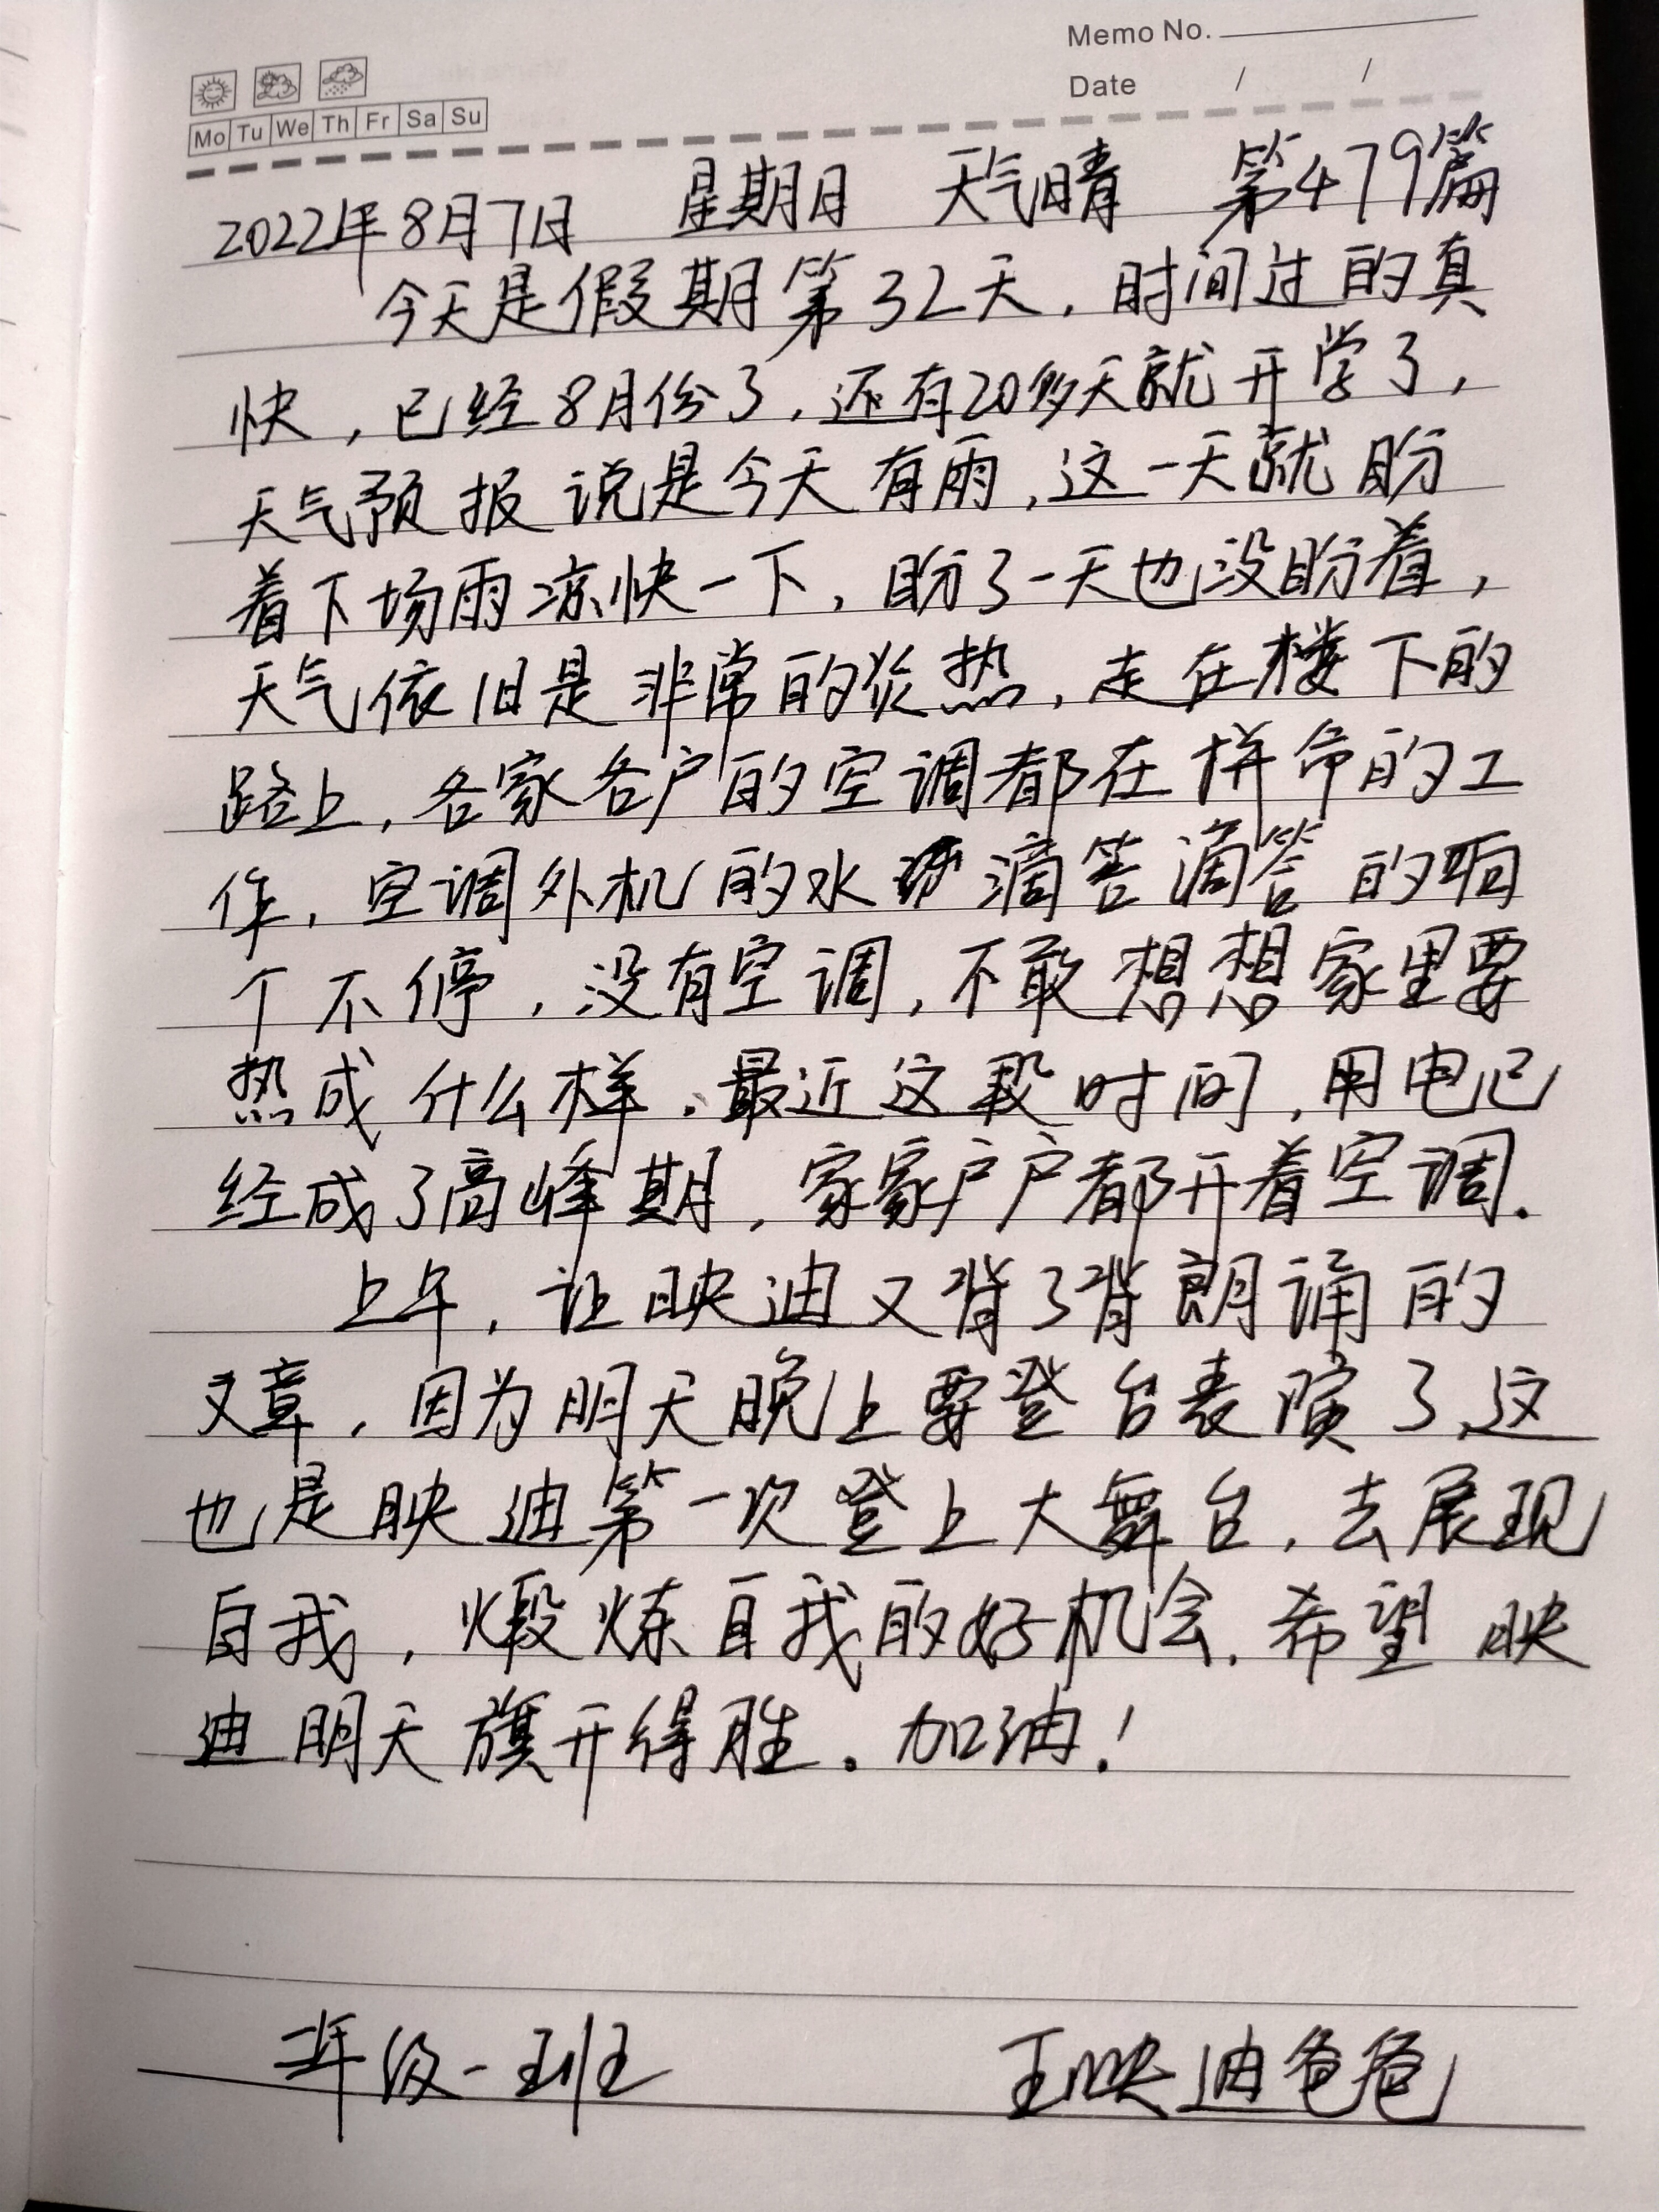 Memo No.
Date / /
Mo Tu We Th Fr Sa Su
2022年8月7日 星期日 天气晴 第479篇
今天是假期第32天，时间过的真
快，已经8月份了，还有20多天就开学了，
天气预报说是今天有雨，这一天就盼
着下场雨凉快一下，盼了一天也没盼着，
天气依旧是非常的炎热，走在楼下的
路上，各家各户的空调都在拼命的工
作，空调外机的水滴答滴答的响
个不停，没有空调，不敢想想家里要
热成什么样。最近这段时间，用电已
经成了高峰期，家家户户都开着空调.
上午，让映迪又背了背朗诵的
文章，因为明天晚上要登台表演了，这
也是映迪第一次登上大舞台，去展现
自我，煅炼自我的好机会.希望映
迪明天旗开得胜。加油！
年级一班 王映迪爸爸